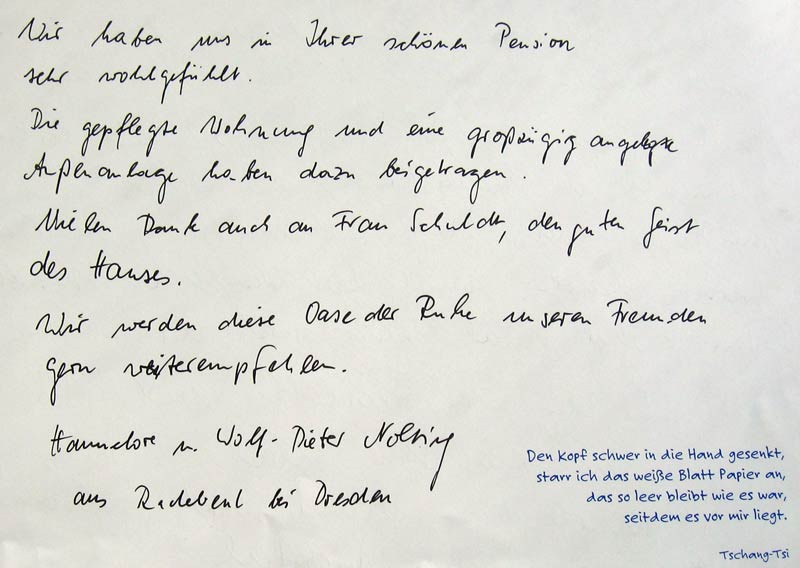 Wir haben uns in Ihrer schönen Pension
sehr wohlgefühlt.
Die gepflegte Wohnung und eine großzügig angelegte
Außenanlage haben dazu beigetragen.
Vielen Dank auch an Frau Schuldt, den guten Geist
des Hauses.
Wir werden diese Oase der Ruhe unseren Freunden
gern weiterempfehlen.
Hannelore u. Wolf-Dieter
aus Radebeul bei Dresden
Den Kopf schwer in die Hand gesenkt,
starr ich das weiße Blatt Papier an,
das so leer bleibt wie es war,
seitdem es vor mir liegt.
Tschang-Tsi